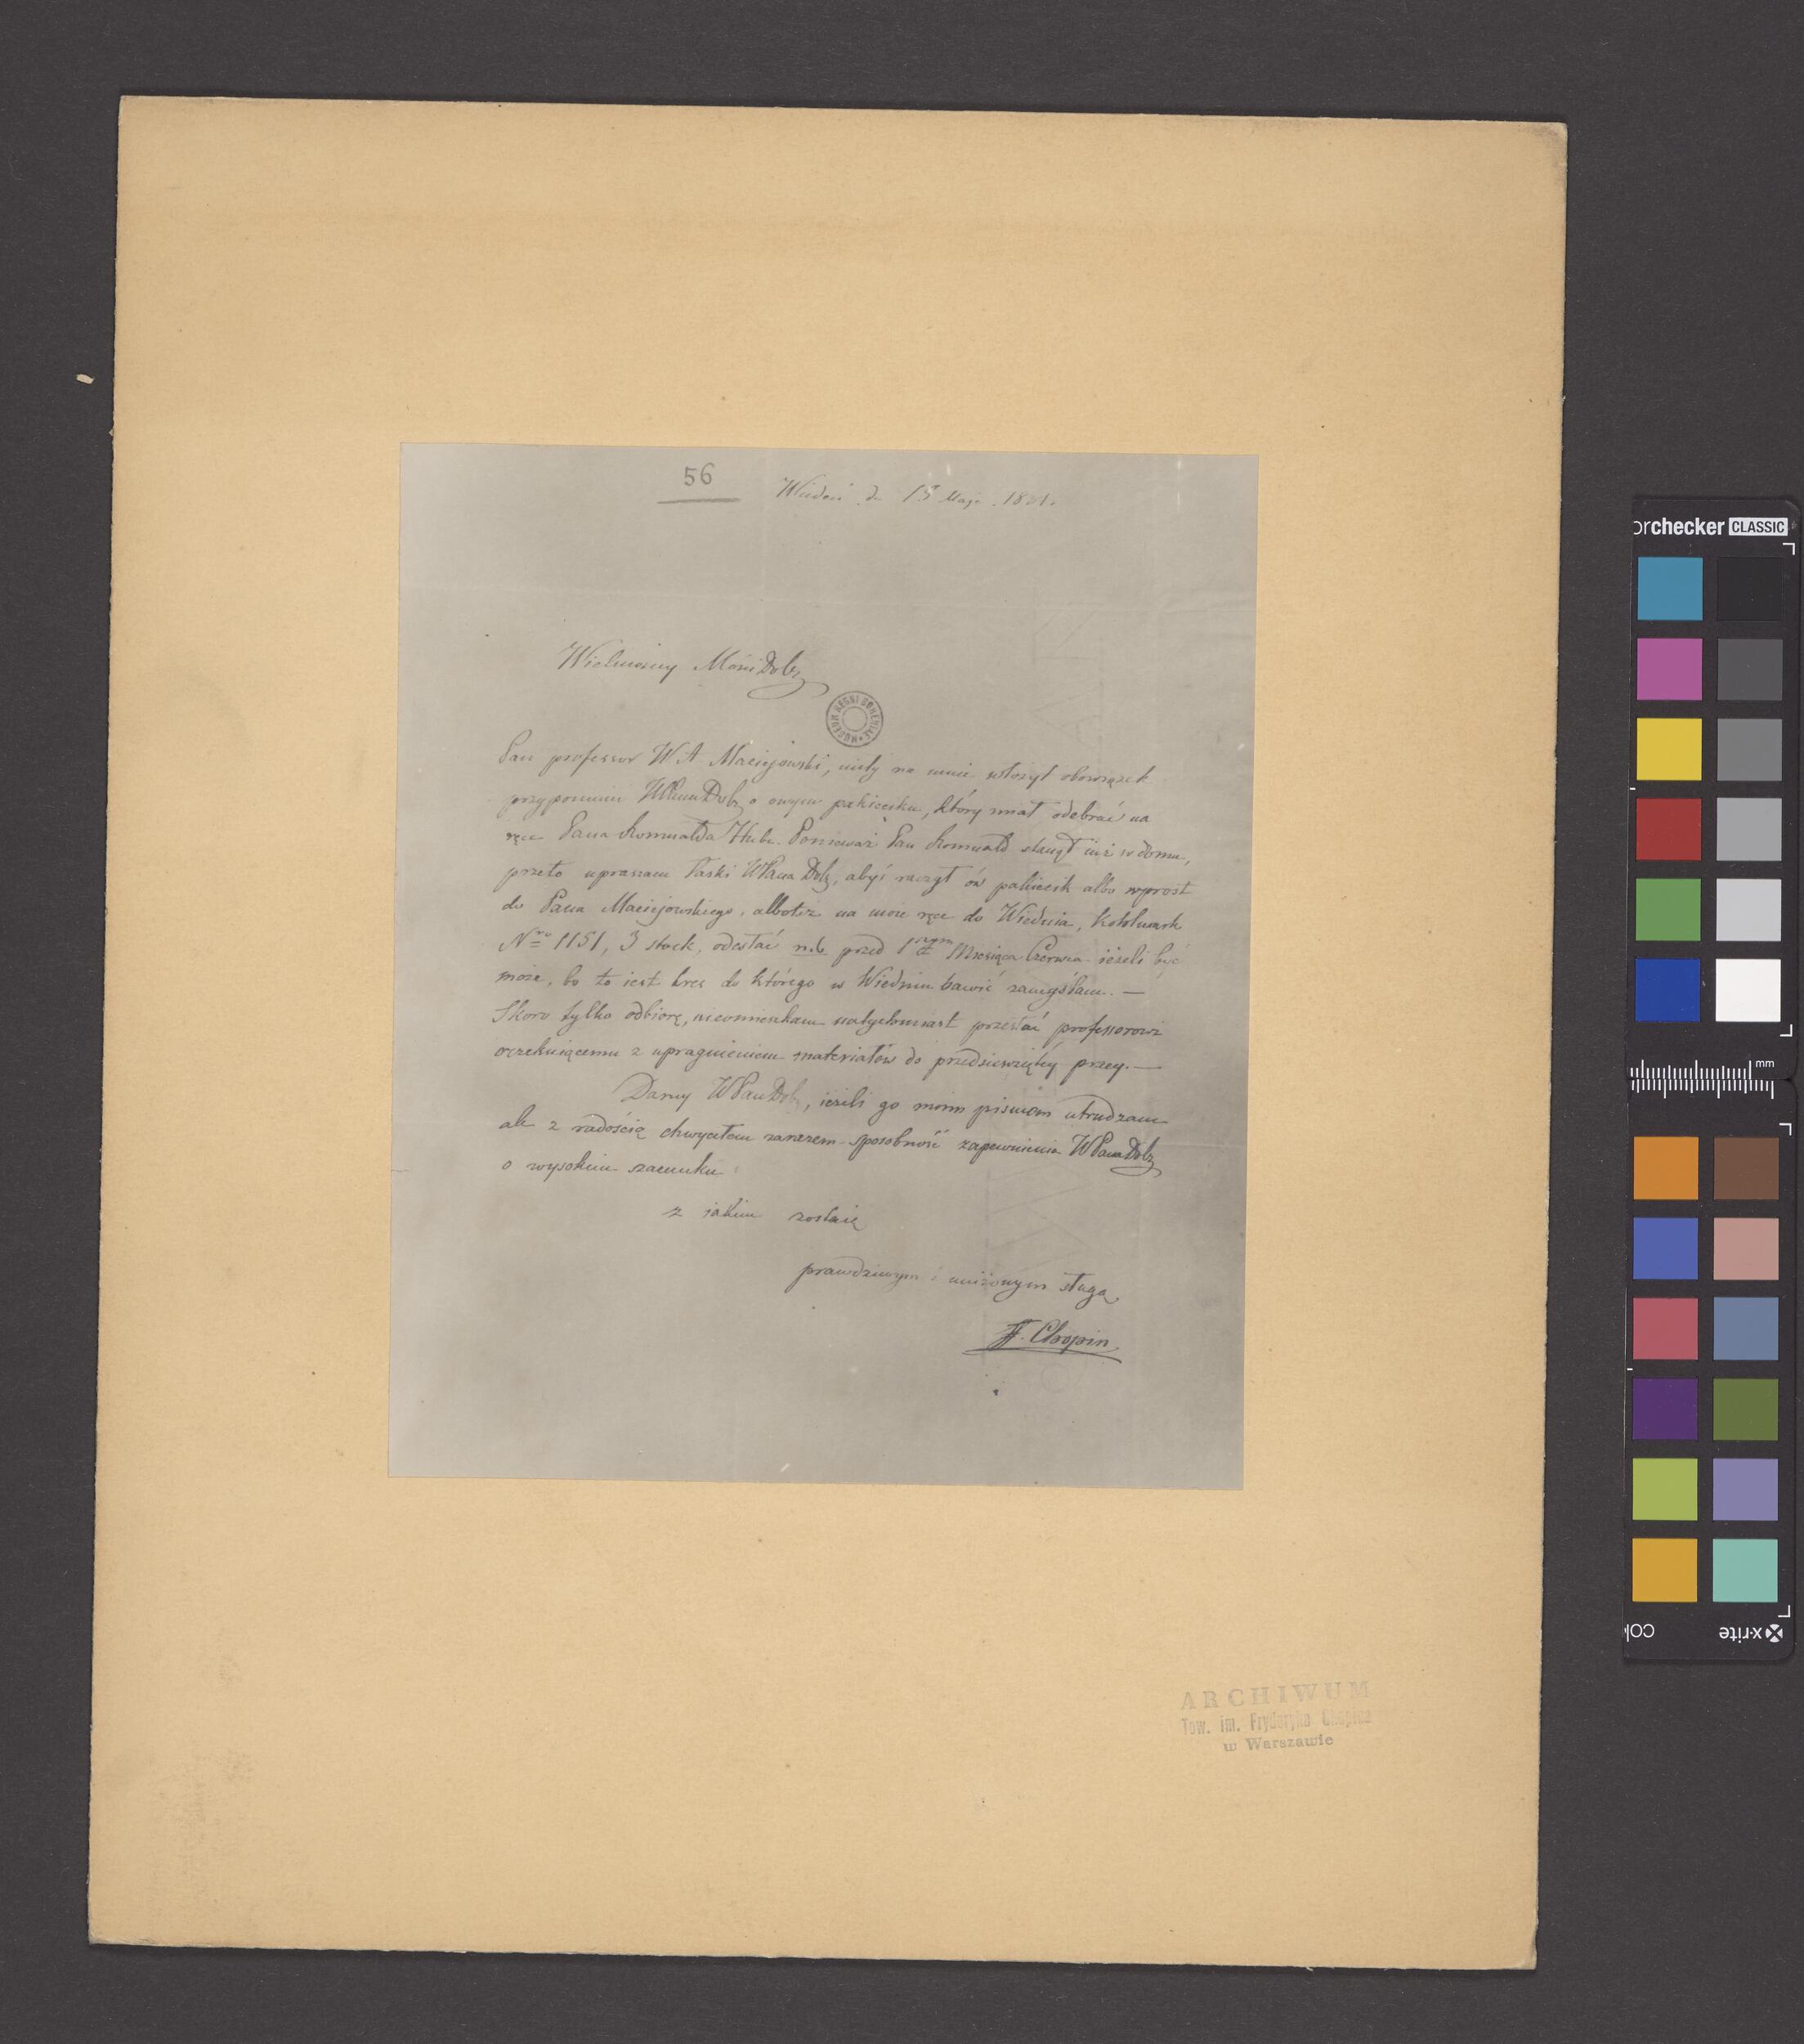 56
Wiedeń d. 15 Maja 1831.
Wielmożny Mości Dobr
MUSEUM REGNI BOHEMIAE
Pan professor W. A. Maciejowski, miły na mnie włożył obowiązek
przypomnieć WPanu Dobr o owym pakieciku, który miał odebrać na
ręce Pana Romualda Hube. Ponieważ Pan Romuald stanął iuż w domu,
przeto upraszam łaski WPana Dobr, abyś raczył ów pakiecik albo wprost
do Pana Maciejowskiego, albotéż na moie ręce do Wiednia, Kohlmark
Nro 1151, 3 stock, odesłać n.b. przed 1szym Miesiąca Czerwca ieżeli być
może, bo to iest kres do którego w Wiedniu bawić zamyślam. —
Skoro tylko odbiorę, nieomieszkam natychmiast przesłać professorowi
oczekuiącemu z upragnieniem materiałów do przedsięwziętéy pracy. —
Daruy WPan Dobr, ieżeli go moim pismem utrudzam
ale z radością chwyciłem zarazem sposobność zapewnienia WPana Dobr
o wysokim szacunku
z iakim zostaię
prawdziwym i uniżonym sługą
FF. Chopin
ARCHIWUM
Tow. im. Fryderyka Chopina
w Warszawie
orchecker CLASSIC
mm
x-rite
col